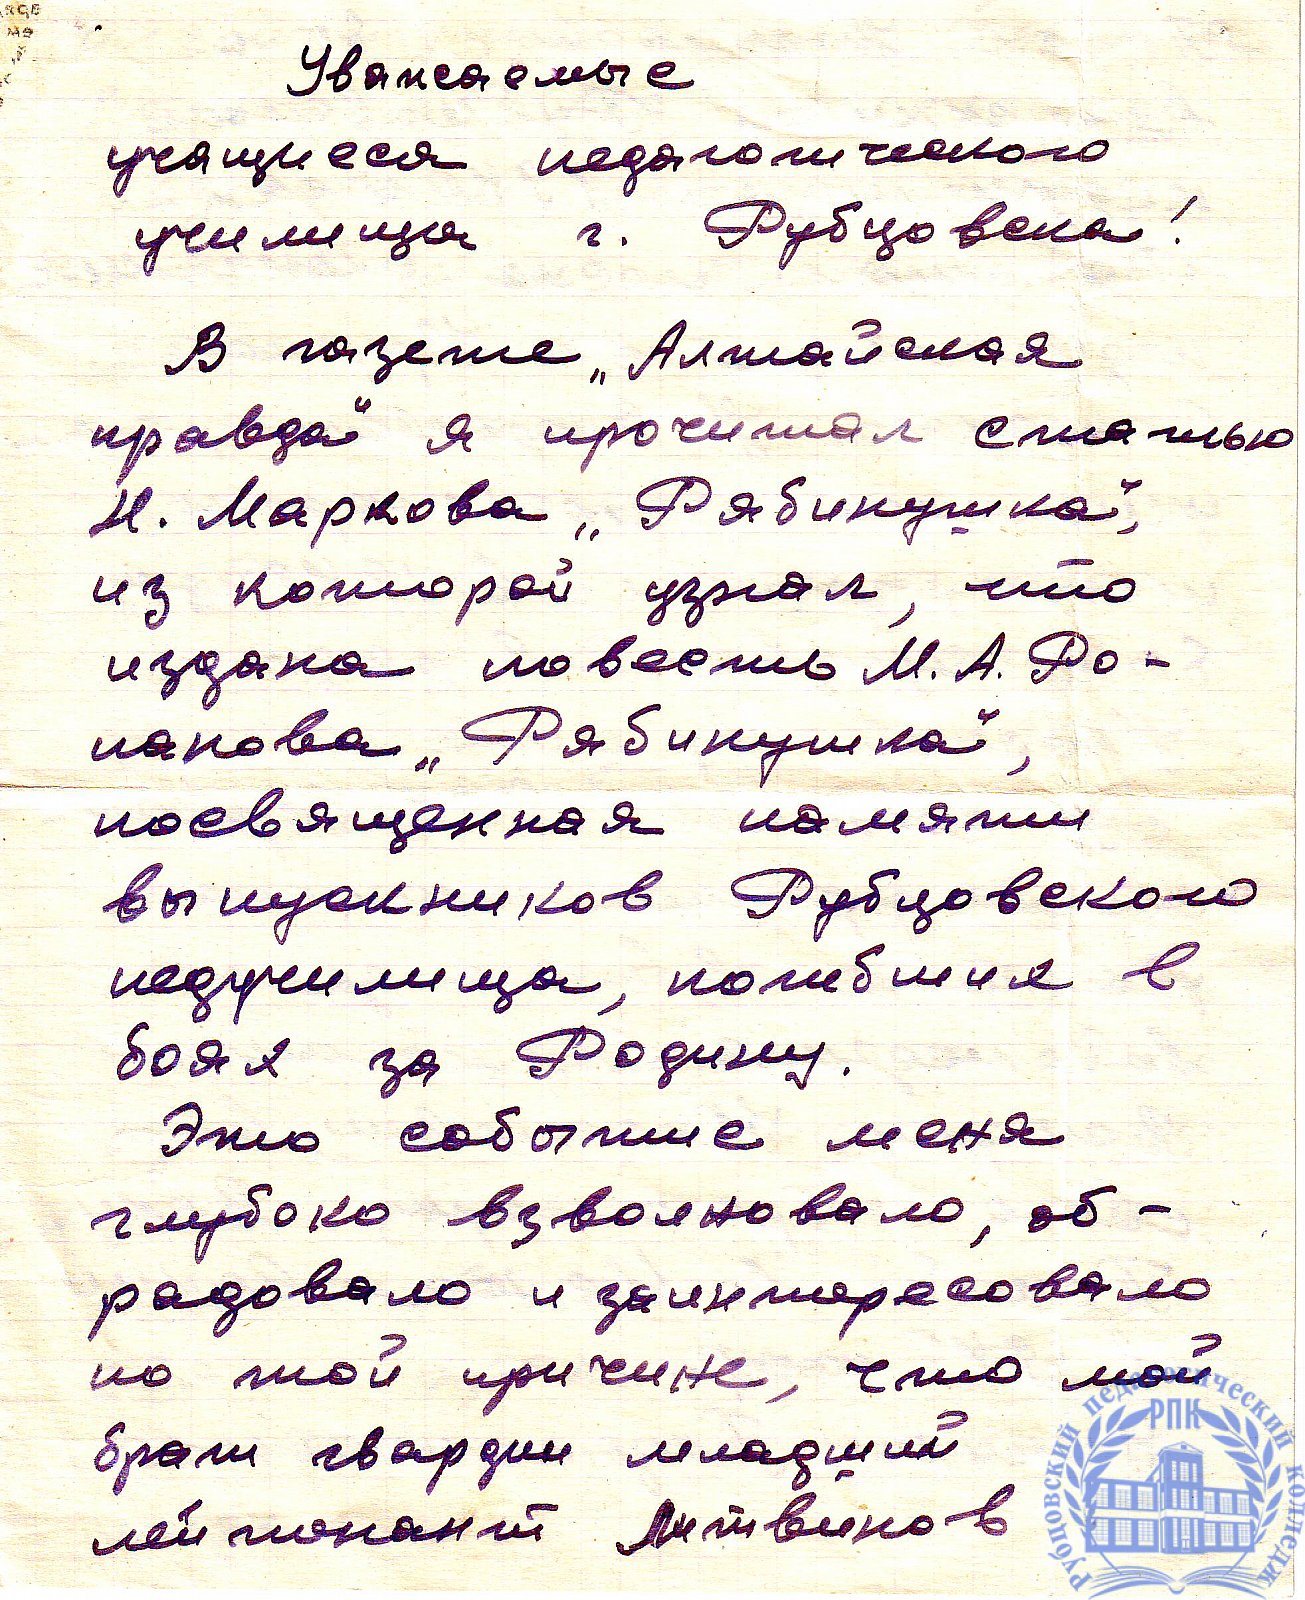 Уважаемые
учащиеся педагогического
училища г. Рубцовска!
В газете „Алтайская
правда" я прочитал статью
Н. Маркова „Рябинушка",
из которой узнал, что
издана повесть М. А. Ро-
панова „Рябинушка",
посвященная памяти
выпускников Рубцовского
педучилища, погибших в
боях за Родину.
Это событие меня
глубоко взволновало, об-
радовало и заинтересовало
по той причине, что мой
брат гвардии младший
лейтенант Литвинов
Рубцовский педагогический колледж
РПК